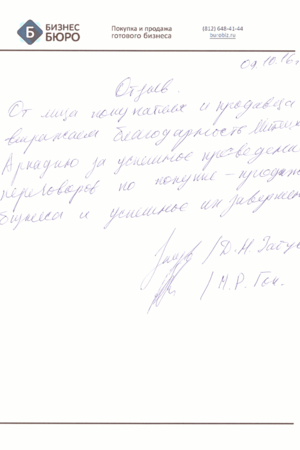 БИЗНЕС
БЮРО
Покупка и продажа
готового бизнеса
(812) 648-41-44
Отзыв.
От лица покупателя и продавца
выражаем благодарность
Аркадию за успешное проведение
переговоров по купле-продаже
бизнеса и успешное их завершение
/ Д.Н
/ М.Р.